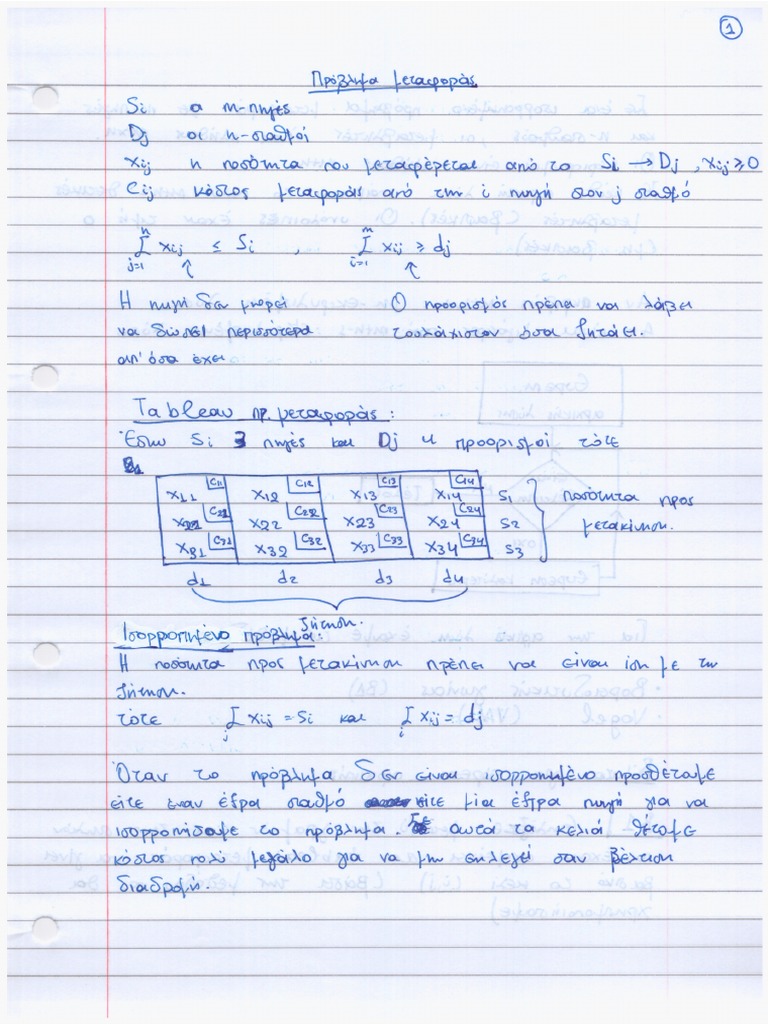 1
Πρόβλημα μεταφοράς
Si οι m-πηγές
Dj οι n-σταθμοί
xij η ποσότητα που μεταφέρεται από το Si → Dj , xij ≥ 0
Cij κόστος μεταφοράς από την i πηγή στον j σταθμό
n ∑ j=1 xij ≤ Si , m ∑ i=1 xij ≥ dj
Η πηγή δεν μπορεί Ο προορισμός πρέπει να λάβει
να δώσει περισσότερα τουλάχιστον όσα ζητάει.
απ' όσα έχει
Tableau πρ. μεταφοράς :
Έστω Si 3 πηγές και Dj 4 προορισμοί τότε
x11 C11 x12 C12 x13 C13 x14 C14 S1 ποσότητα προς
C21 x22 C22 x23 C23 x24 C24 S2 μετακίνηση.
x31 C31 x32 C32 x33 C33 x34 C34 S3
d1 d2 d3 d4
ζήτηση.
Ισορροπημένο πρόβλημα:
Η ποσότητα προς μετακίνηση πρέπει να είναι ίση με την
ζήτηση.
τότε ∑ j xij = Si και ∑ i xij = dj
Όταν το πρόβλημα δεν είναι ισορροπημένο προσθέτουμε
είτε έναν έξτρα σταθμό είτε μία έξτρα πηγή για να
ισορροπήσουμε το πρόβλημα. Σε αυτά τα κελιά θέτουμε
κόστος πολύ μεγάλο για να μην επιλεγεί σαν βέλτιστη
διαδρομή.